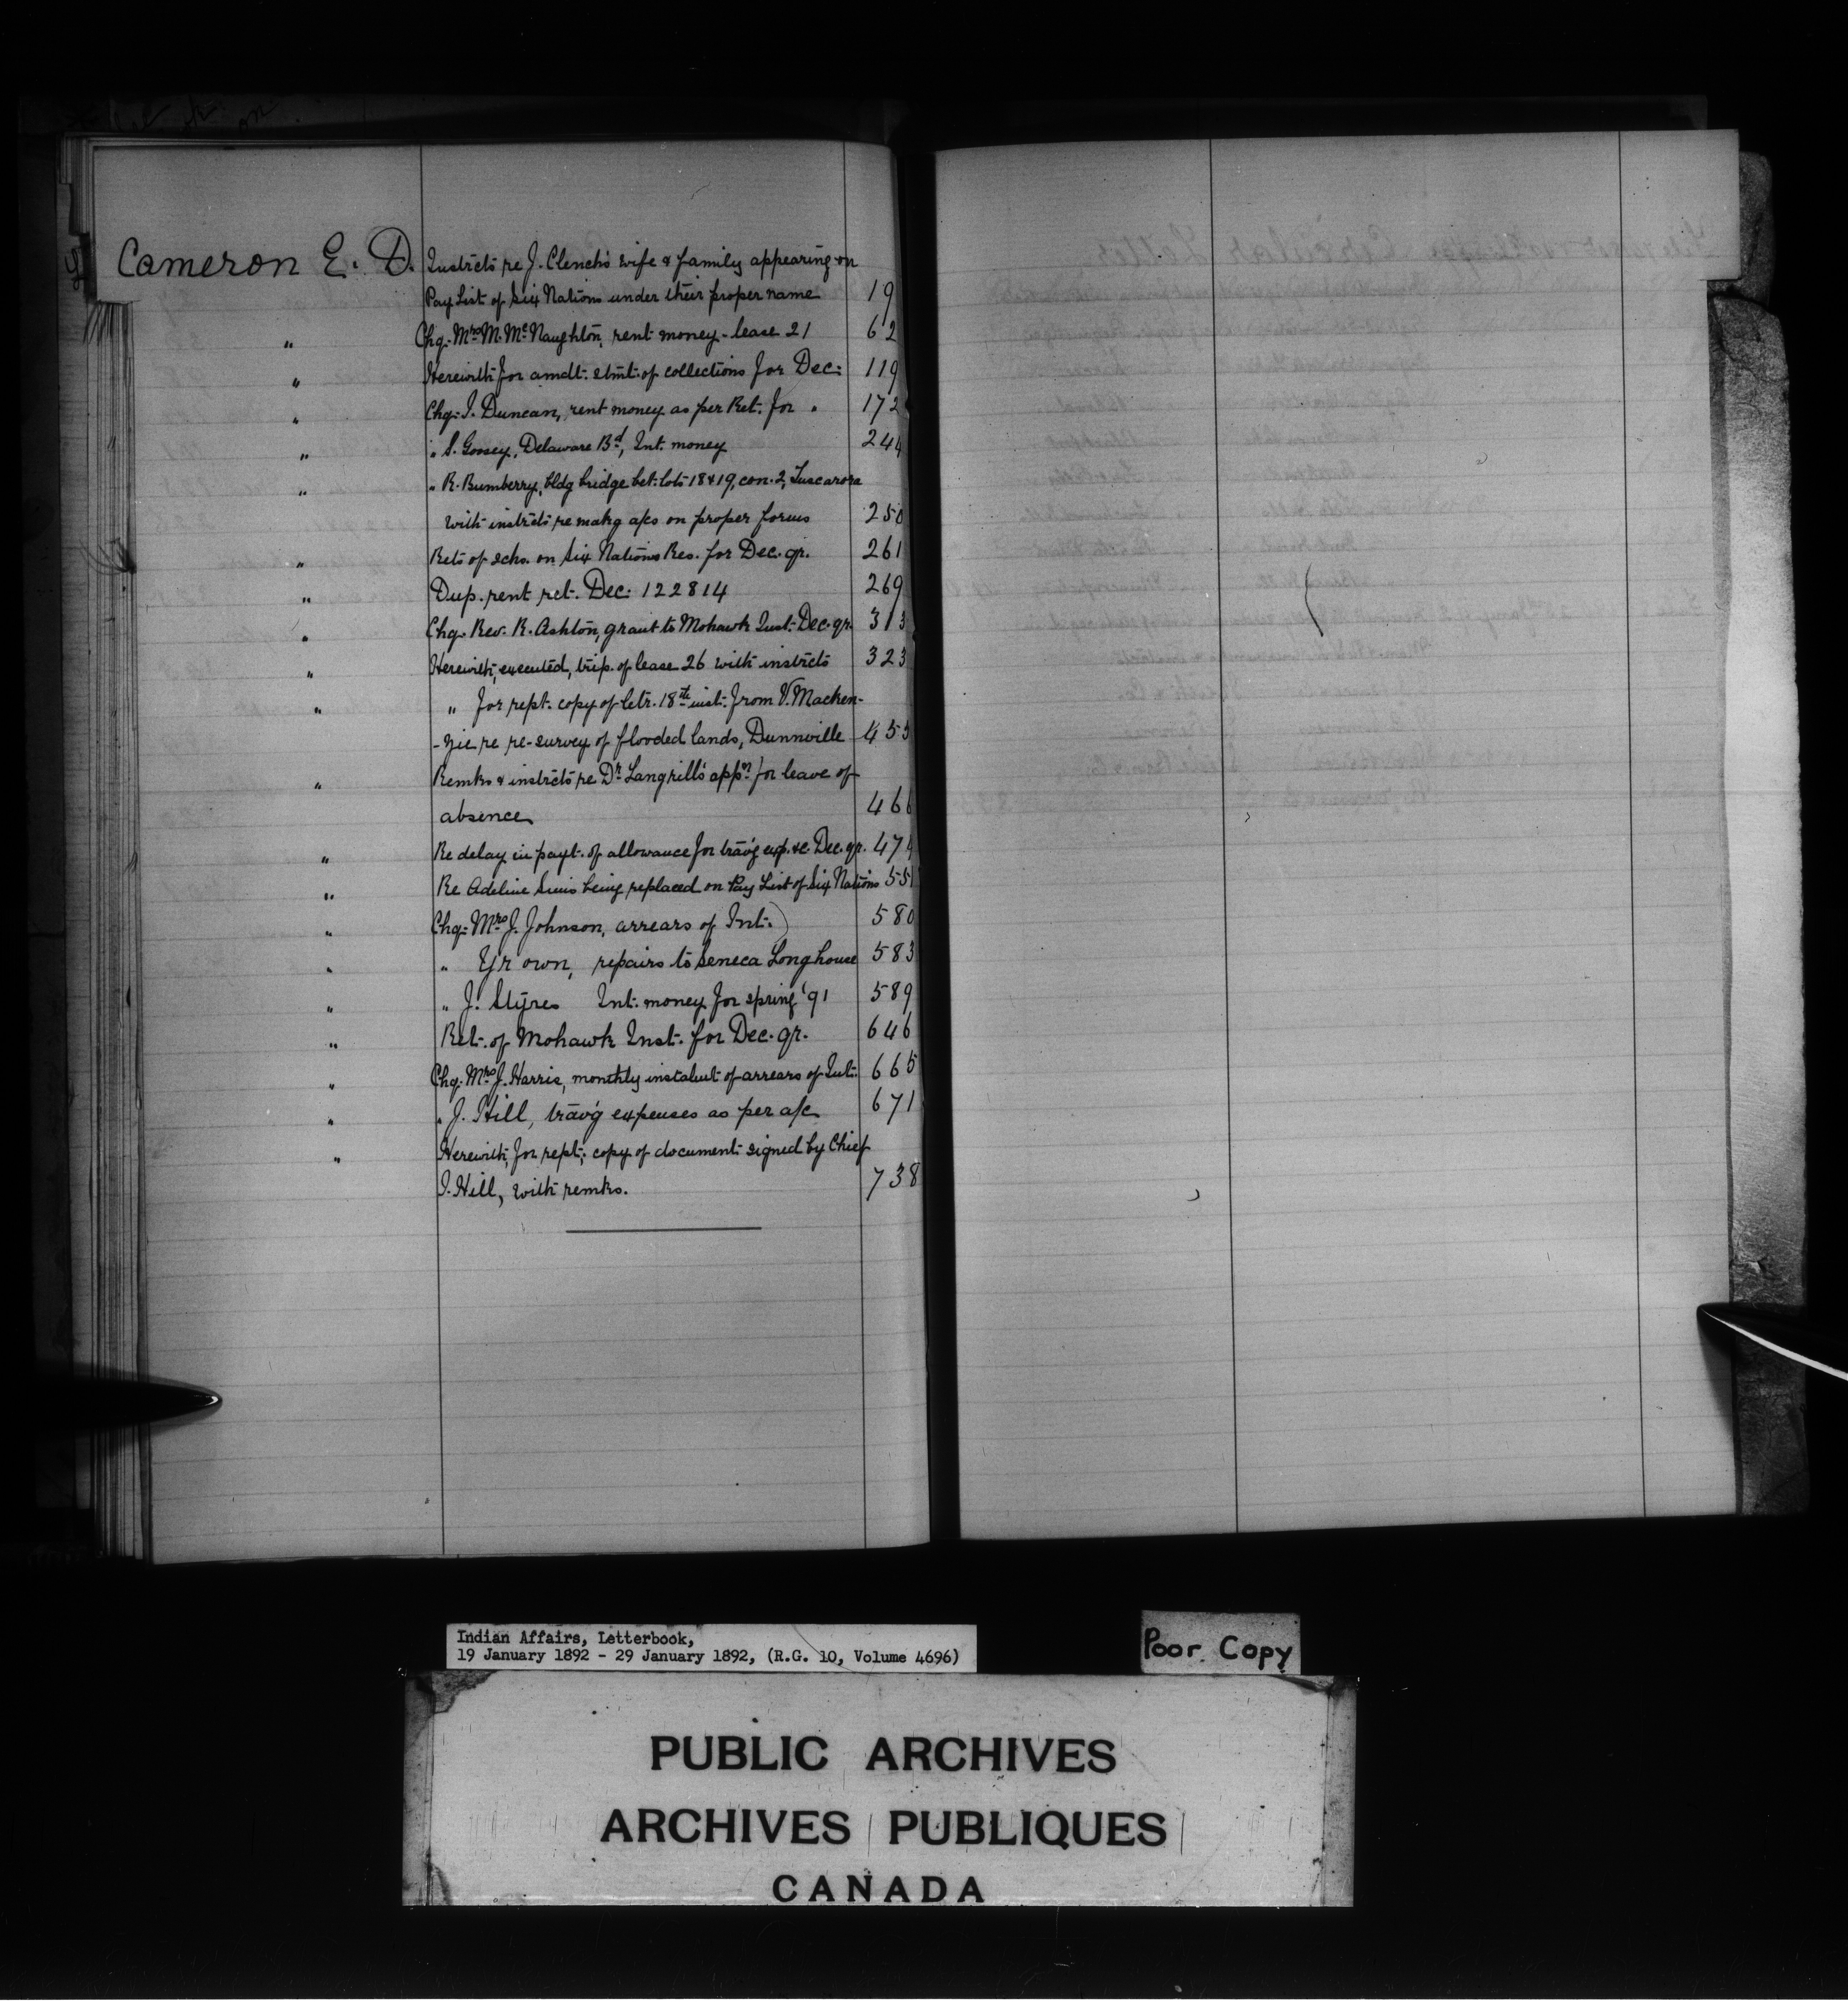 Cameron E. D. Instrcts re J. Clench's wife & family appearing on
Pay List of Six Nations under their proper name 19
" Chq. Mrs M. McNaughton, rent money - lease 21 62
" Herewith for amdt. stmt. of collections for Dec. 119
" Chq. J. Duncan, rent money as per Ret. for " 172
" " S. Goosey, Delaware Bd, Int. money 244
" " R. Bumberry, bldg bridge bet. lots 18 & 19, con. 2, Tuscarora
with instrcts re makg a/cs on proper forms 250
" Rets of schs. on Six Nations Res. for Dec. qr. 261
" Dup. rent ret. Dec. 122814 269
" Chq. Rev. R. Ashton, grant to Mohawk Inst. Dec. qr. 313
" Herewith, executed, trip. of lease 26 with instrcts 323
" " for rept. copy of letr. 18th inst. from V. Macken-
-zie re re-survey of flooded lands, Dunnville 453
" Remks & instrcts re Dr Langrill's appn for leave of
absence 466
" Re delay in payt. of allowance for trav'g exp. &c. Dec. qr. 474
" Re Adeline Simis being replaced on Pay List of Six Nations 551
" Chq. Mrs J. Johnson, arrears of Int. 580
" " Yr own, repairs to Seneca Longhouse 583
" " J. Styres Int. money for spring '91 589
" Ret. of Mohawk Inst. for Dec. qr. 646
" Chq. Mrs J. Harris, monthly instalmt of arrears of Int. 665
" " J. Hill, trav'g expenses as per a/c 671
" Herewith, for rept, copy of document signed by Chief
J. Hill, with remks. 738
Indian Affairs, Letterbook,
19 January 1892 - 29 January 1892, (R.G. 10, Volume 4696)
Poor Copy
PUBLIC ARCHIVES
ARCHIVES PUBLIQUES
CANADA